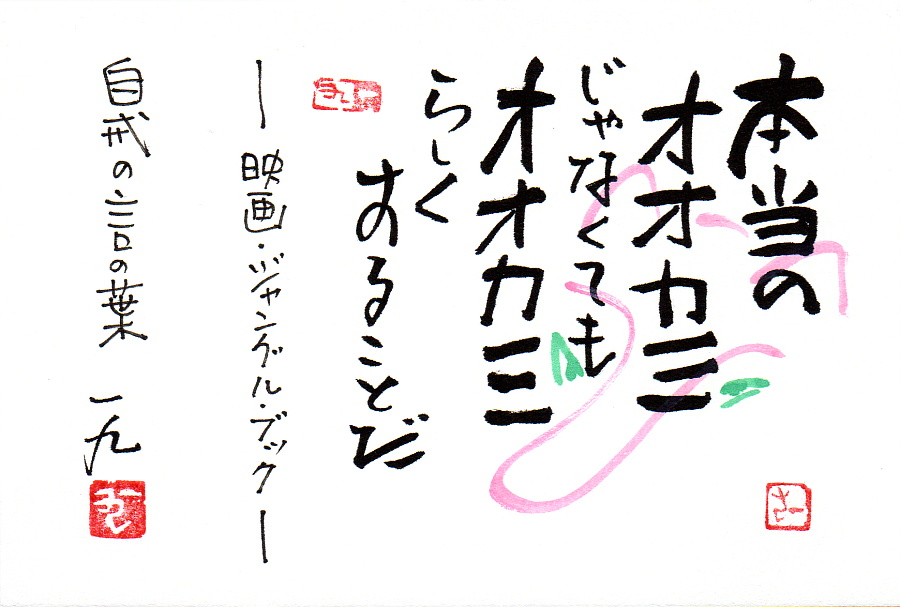 本当の
オオカミ
じゃなくても
オオカミ
らしく
することだ
ー映画・ジャングル・ブックー
自戒の言の葉 一九